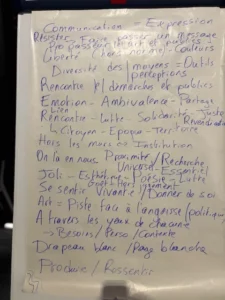 Communication = Expression
Résister Faire passer un message
Propos
Liberté hors norme Couleurs
Diversité des moyens = Outils
perceptions
Rencontre démarches publics
Emotion - Ambivalence - Partage
bien
Rencontre - Lutte - Solidarité - Juste
Revendication
Citoyen - Epoque - Territoire
Hors les murs Institution
De là en nous Proximité / Recherche
Universel - Essentiel
Joli - Esthétique Poésie - Lutte
Goût Hors jugement
Se sentir Vivant.e / Donner de soi
Art = Piste face à l'angoisse / politique
A travers les yeux de chacun.e
→ Besoins / Perso / Contexte
Drapeau blanc / Page blanche
Produire / Ressentir